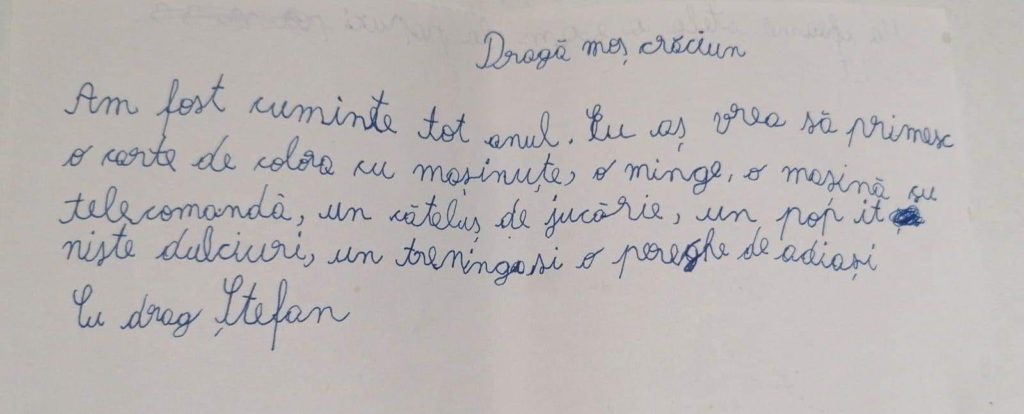 Dragă moș crăciun
Am fost cuminte tot anul. Eu aș vrea să primesc
o carte de colora cu mașinuțe, o minge, o mașină cu
telecomandă, un cățeluș de jucărie, un pop it
niște dulciuri, un treninga și o pereghe de adiași
Cu drag Ștefan